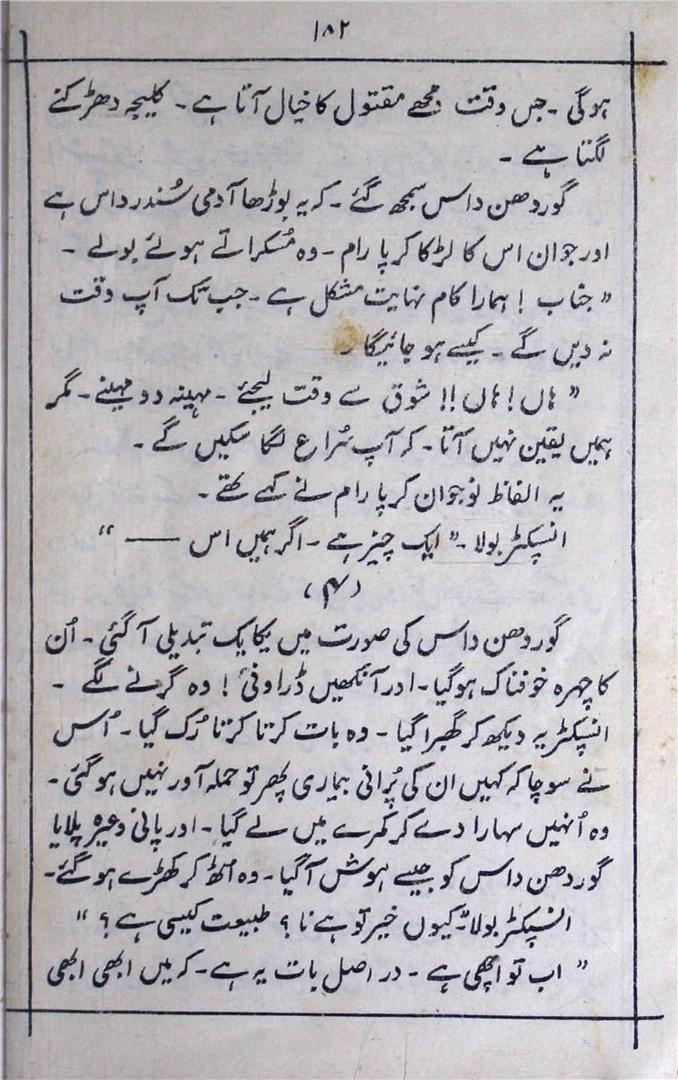 ۱۸۲
ہوگی ۔ جس وقت مجھے مقتول کا خیال آتا ہے ۔ کلیجہ دھڑکنے
لگتا ہے ۔
گوردھن داس سمجھ گئے ۔ کہ یہ بوڑھا آدمی سُندر داس ہے
اور جوان اس کا لڑکا کرپا رام ۔ وہ مُسکراتے ہوئے بولے ۔
" جناب ! ہمارا کام نہایت مشکل ہے ۔ جب تک آپ وقت
نہ دیں گے ۔ کیسے ہو جائیگا ۔
" ہاں ! ہاں !! شوق سے وقت لیجئے ۔ مہینہ دو مہینے ۔ مگر
ہمیں یقین نہیں آتا ۔ کہ آپ سُراغ لگا سکیں گے ۔
یہ الفاظ نوجوان کرپا رام نے کہے تھے ۔
انسپکٹر بولا ۔ " ایک چیز ہے ۔ اگر ہمیں اس —— "
(۴)
گوردھن داس کی صورت میں یکایک تبدیلی آ گئی ۔ اُن
کا چہرہ خوفناک ہوگیا ۔ اور آنکھیں ڈراونی ! وہ گرنے لگے ۔
انسپکٹر یہ دیکھ کر گھبرا گیا ۔ وہ بات کرتا کرتا رُک گیا ۔ اُس
نے سوچا کہ کہیں ان کی پُرانی بیماری پھر تو حملہ آور نہیں ہوگئی ۔
وہ اُنہیں سہارا دے کر کمرے میں لے گیا ۔ اور پانی وغیرہ پلایا
گوردھن داس کو جیسے ہوش آگیا ۔ وہ اُٹھ کر کھڑے ہو گئے ۔
انسپکٹر بولا " کیوں خیر تو ہے نا ؟ طبیعت کیسی ہے ؟ "
" اب تو اچھی ہے ۔ در اصل بات یہ ہے ۔ کہ میں ابھی ابھی